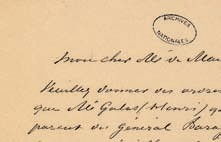 ARCHIVES NATIONALES
mon cher Mr de Mau
Veuillez donner des ordres
que Mr Galos (Henri) q
parent du Général Bara